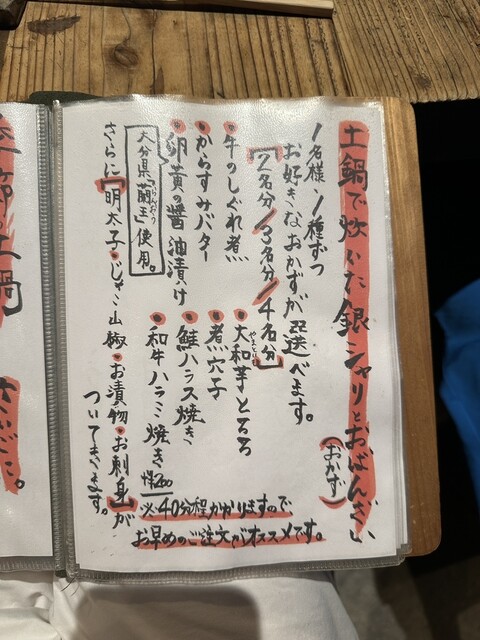 土鍋で炊いた銀シャリとおばんざい
(おかず)
1名様・1種ずつ
お好きなおかずが選べます。
【2名分/3名分/4名分】
・牛のしぐれ煮
・からすみバター
・卵黄の醤油漬け
大分県「蘭王」使用。
らんおう
・大和芋とろろ
やまといも
・煮穴子
・鮭ハラス焼き
・和牛ハラミ焼き
さらに【明太子・じゃこ山椒・お漬物・お刺身】が
ついてきます。
※40分程かかりますので、
お早めのご注文がオススメです。